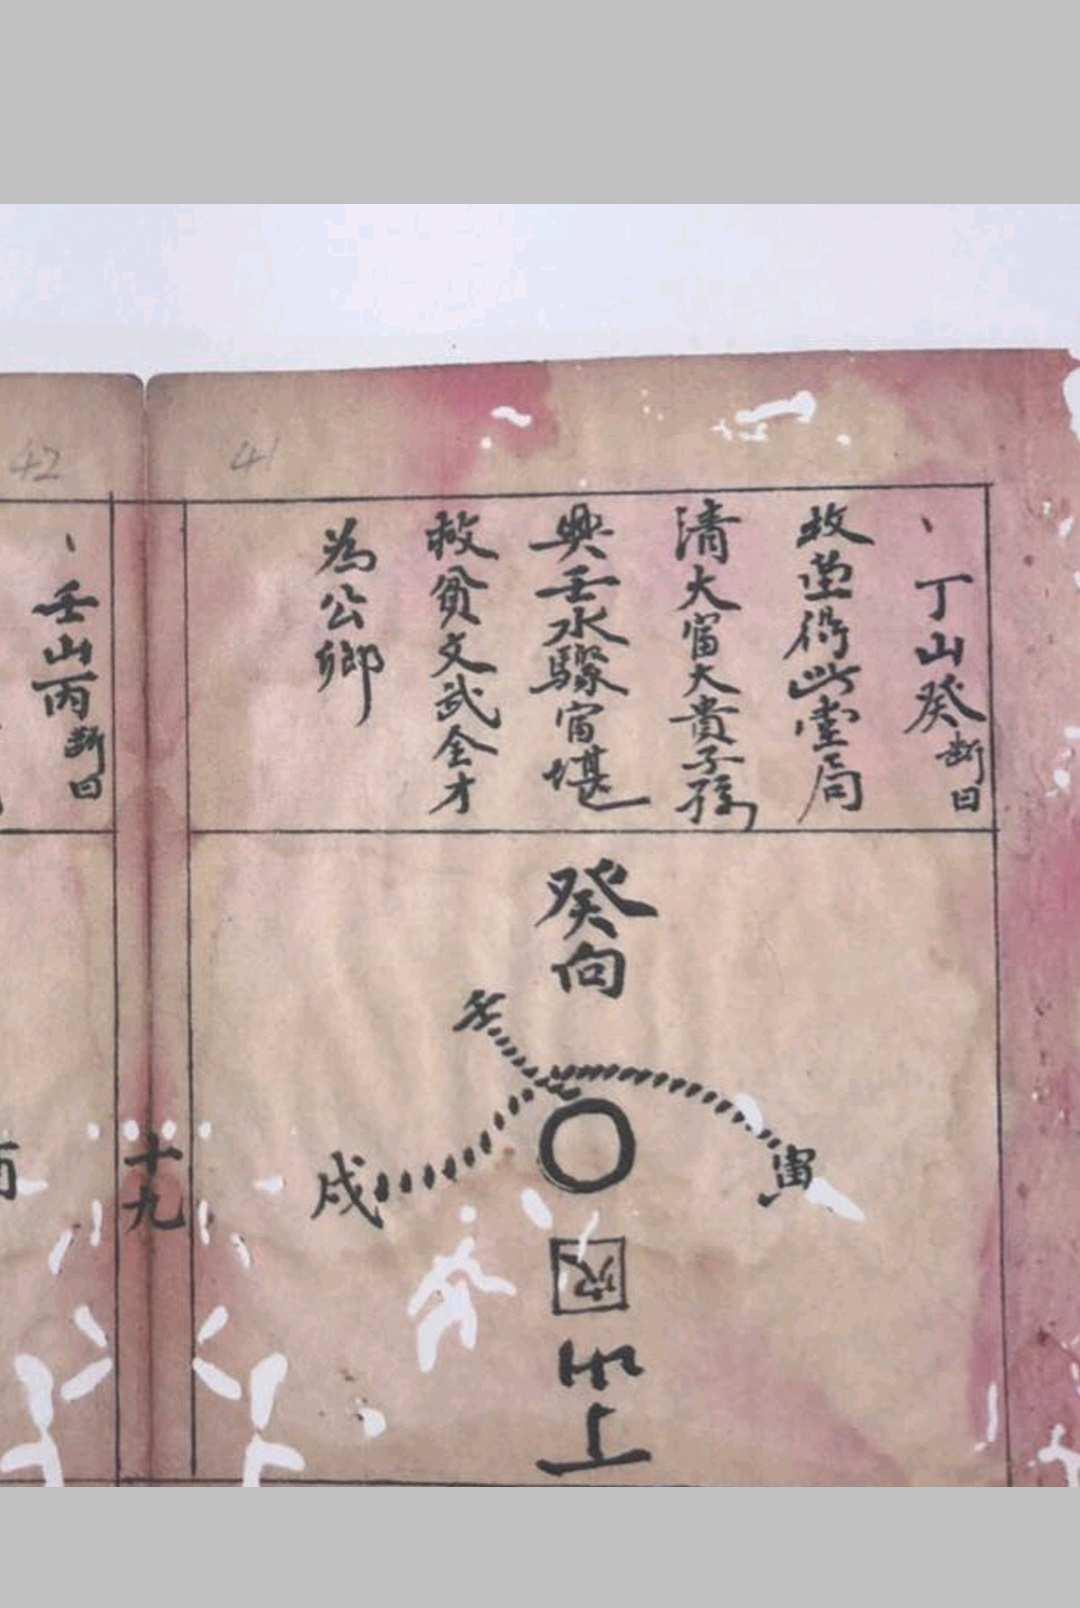 41
丁山癸断曰
故茔衔此堂局
清大富大貴子孫
興壬水驟富堪
救貧文武全才
為公卿
癸向
壬
寅
戌
穴
丁山
十九
42
壬山丙断曰